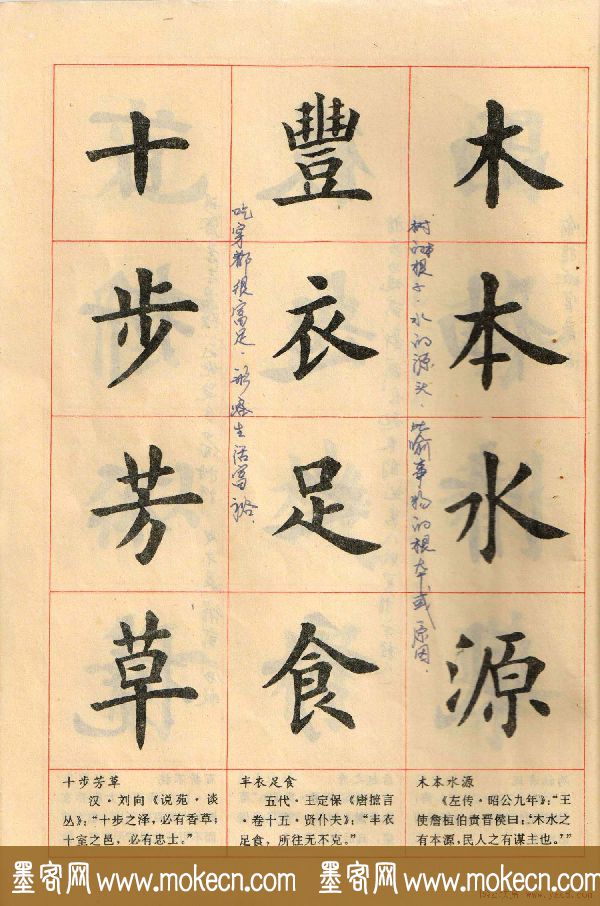 木本水源
豐衣足食
十步芳草
树的根子·水的源头·比喻事物的根本或原因.
吃穿都很富足·形容生活富裕.
木本水源
《左传·昭公九年》:“王
使詹桓伯责晋侯曰:‘木水之
有本源,民人之有谋主也。’”
丰衣足食
五代·王定保《唐摭言
·卷十五·贤仆夫》:“丰衣
足食,所往无不克。”
十步芳草
汉·刘向《说苑·谈
丛》:“十步之泽,必有香草;
十室之邑,必有忠士。”
墨客网 www.mokecn.com 墨客网 www.mokecn.com